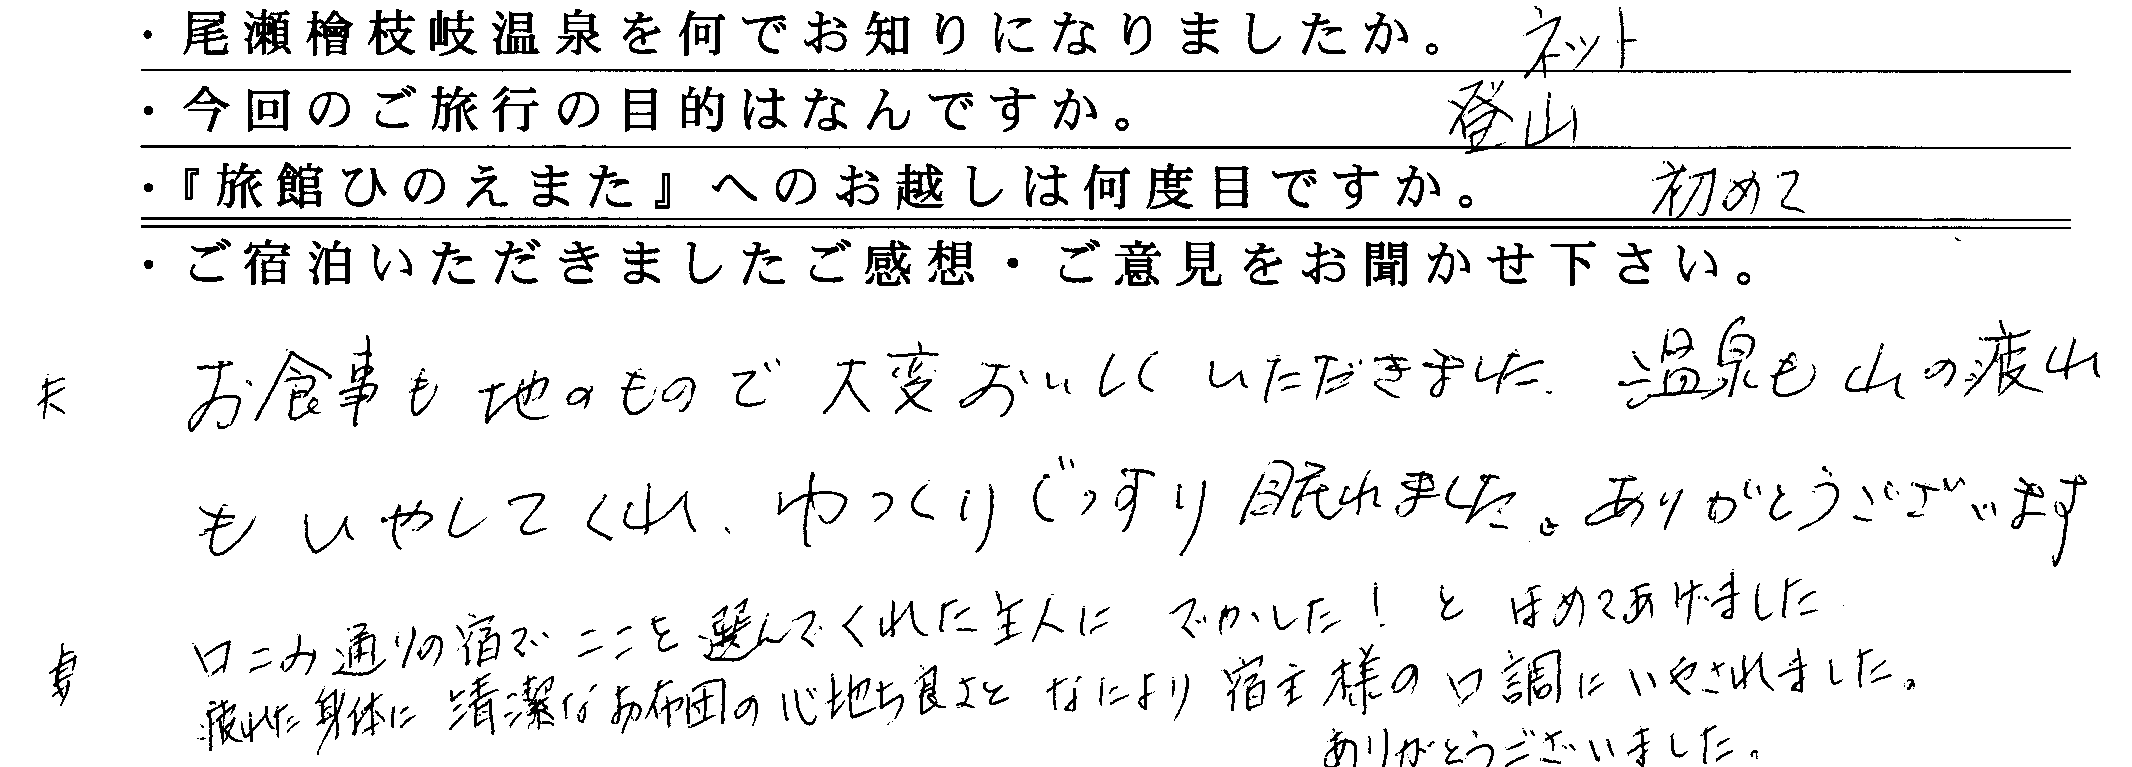 ・尾瀬檜枝岐温泉を何でお知りになりましたか。 ネット
・今回のご旅行の目的はなんですか。 登山
・『旅館ひのえまた』へのお越しは何度目ですか。 初めて
・ご宿泊いただきましたご感想・ご意見をお聞かせ下さい。
夫 お食事も地のもので大変おいしくいただきました。温泉も山の疲れ
もいやしてくれ、ゆっくりぐっすり眠れました。ありがとうございます
妻 口こみ通りの宿で ここを選んでくれた主人に でかした！と ほめてあげました
疲れた身体に 清潔なお布団の心地ち良さと なにより 宿主様の口調にいやされました。
ありがとうございました。